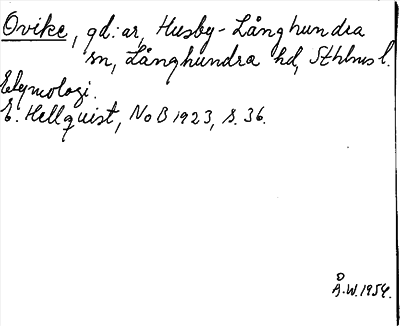 Ovike, gd:ar, Husby-Långhundra
sn, Långhundra hd, Sthlms l.
Etymologi.
E. Hellquist, NoB 1923, s. 36.
Å.W. 1954.